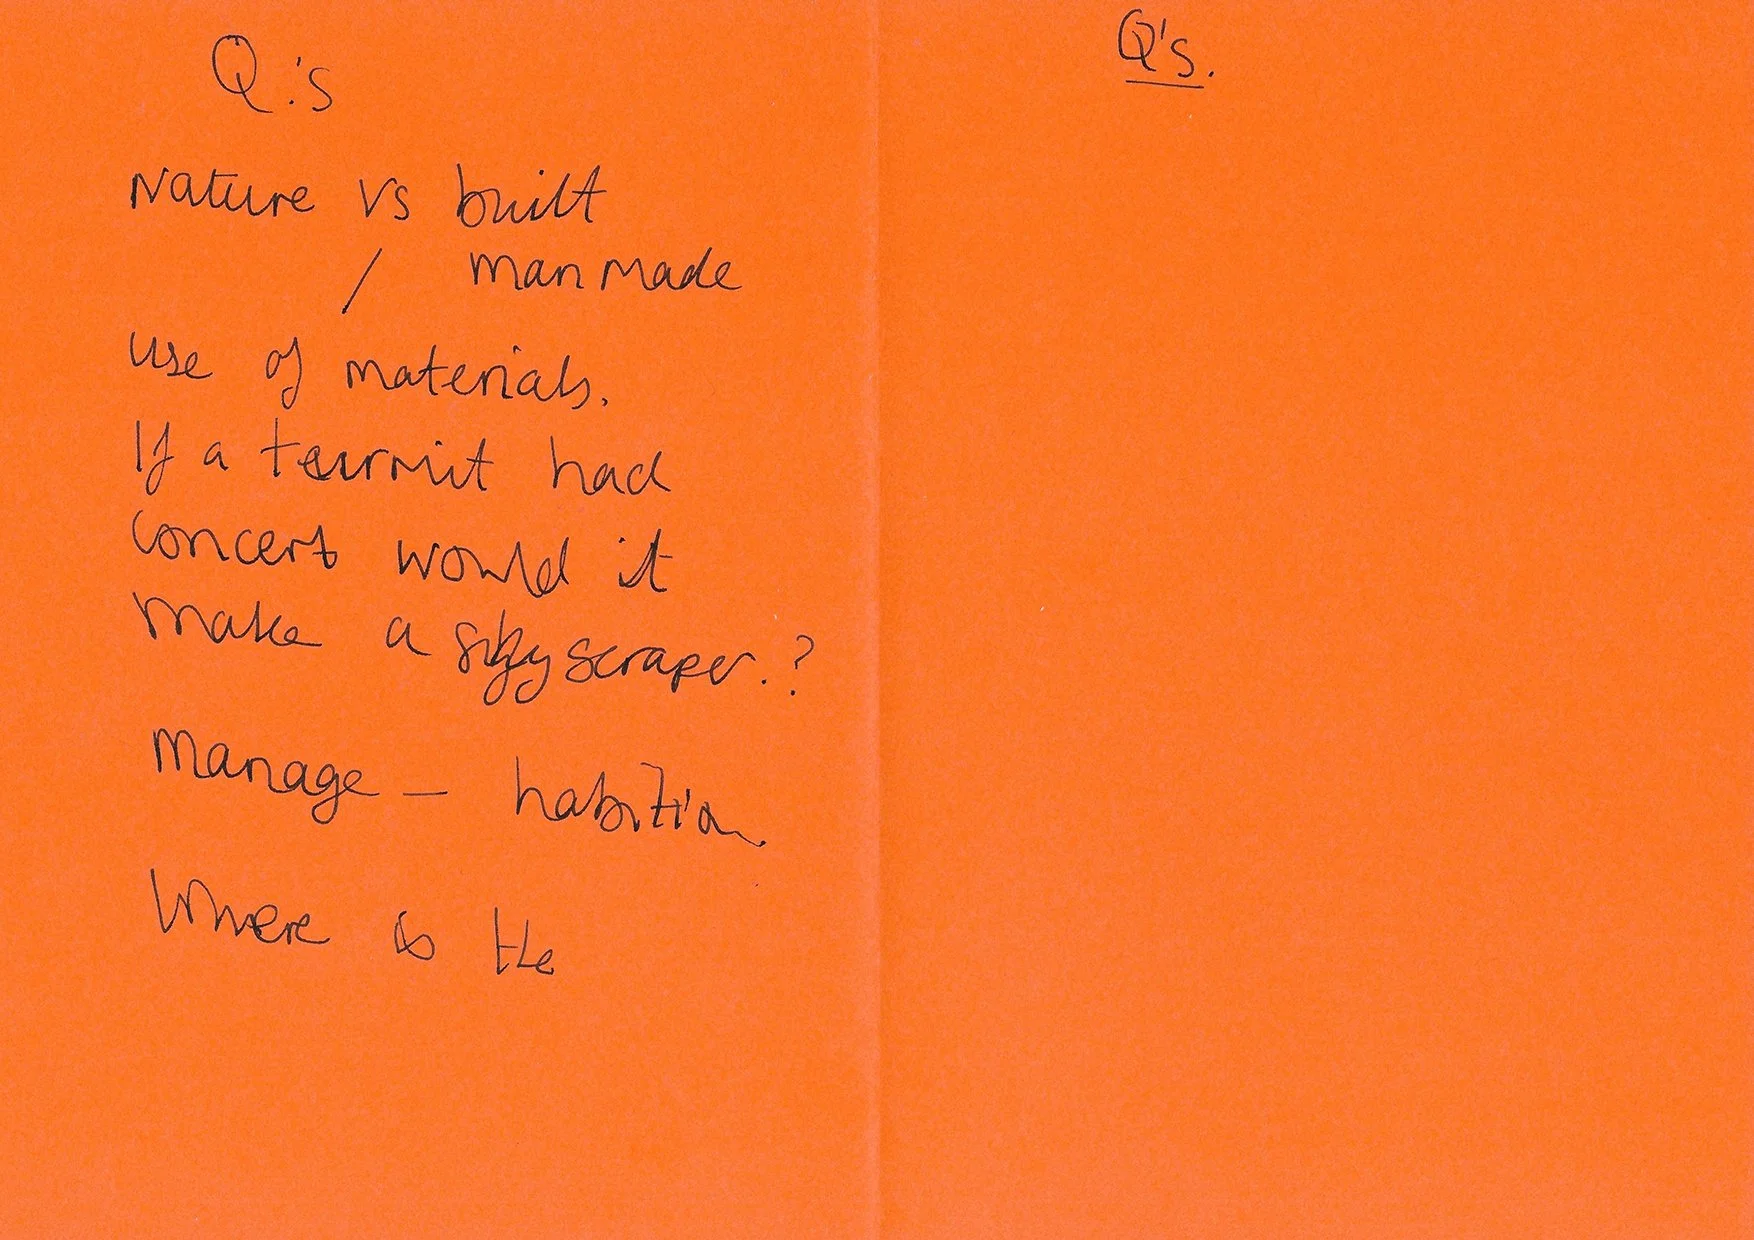 Q.'s
Nature vs built
/ man made
use of materials.
If a teurmit had
concert would it
make a skyscraper.?
Manage – habition.
Where is the
Q's.